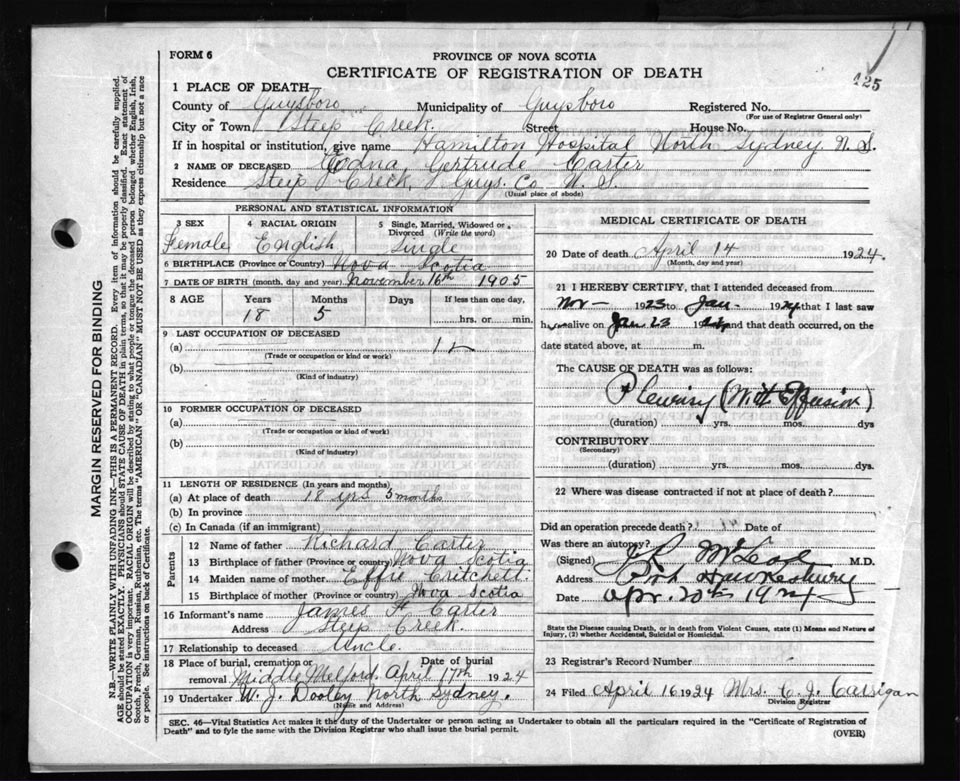 FORM 6
PROVINCE OF NOVA SCOTIA
CERTIFICATE OF REGISTRATION OF DEATH
125
1 PLACE OF DEATH
County of Guysboro Municipality of Guysboro Registered No.
(For use of Registrar General only)
City or Town Steep Creek. Street House No.
If in hospital or institution, give name Hamilton Hospital North Sydney N. S.
2 NAME OF DECEASED Edna Gertrude Carter
Residence Steep Creek, Guys. Co. N. S.
(Usual place of abode)
PERSONAL AND STATISTICAL INFORMATION
3 SEX Female
4 RACIAL ORIGIN English
5 Single, Married, Widowed or Divorced (Write the word) Single
6 BIRTHPLACE (Province or Country) Nova Scotia
7 DATE OF BIRTH (month, day and year) November 16th 1905
8 AGE Years Months Days If less than one day,
18 5 hrs. or min.
9 LAST OCCUPATION OF DECEASED
(a)
(Trade or occupation or kind or work)
(b)
(Kind of industry)
10 FORMER OCCUPATION OF DECEASED
(a)
(Trade or occupation or kind or work)
(b)
(Kind of industry)
11 LENGTH OF RESIDENCE (In years and months)
(a) At place of death 18 yrs 5 months
(b) In province
(c) In Canada (if an immigrant)
Parents
12 Name of father Richard Carter
13 Birthplace of father (Province or country) Nova Scotia
14 Maiden name of mother Effie Critchett.
15 Birthplace of mother (Province or country) Nova Scotia
16 Informant's name James H Carter
Address Steep Creek.
17 Relationship to deceased Uncle.
18 Place of burial, cremation or removal Middle Melford. Date of burial April 17th 1924
19 Undertaker W. J. Dooley North Sydney.
(Name and Address)
MEDICAL CERTIFICATE OF DEATH
20 Date of death April 14 1924.
(Month, day and year)
21 I HEREBY CERTIFY, that I attended deceased from
Nov- 1923 to Jan- 1924 that I last saw
h alive on Jan 23 1924 and that death occurred, on the
date stated above, at m.
The CAUSE OF DEATH was as follows:
Pleurisy (with Effusion)
(duration) yrs. mos. dys
CONTRIBUTORY
(Secondary)
(duration) yrs. mos. dys.
22 Where was disease contracted if not at place of death?
Did an operation precede death? Date of
Was there an autopsy?
(Signed) M.D.
Address Port Hawkesbury
Date Apr. 20th 1924
State the Disease causing Death, or in death from Violent Causes, state (1) Means and Nature of
Injury, (2) whether Accidental, Suicidal or Homicidal.
23 Registrar's Record Number
24 Filed April 16 1924 Mrs. C. J. Carrigan
Division Registrar
SEC. 46—Vital Statistics Act makes it the duty of the Undertaker or person acting as Undertaker to obtain all the particulars required in the "Certificate of Registration of
Death" and to fyle the same with the Division Registrar who shall issue the burial permit.
(OVER)
MARGIN RESERVED FOR BINDING
N.B.—WRITE PLAINLY WITH UNFADING INK—THIS IS A PERMANENT RECORD. Every item of information should be carefully supplied.
AGE should be stated EXACTLY. PHYSICIANS should STATE CAUSE OF DEATH in plain terms, so that it may be properly classified. Exact statement of
OCCUPATION is very important. RACIAL ORIGIN will be described by stating to what people or tongue the deceased person belonged whether English, Irish,
Scotch, French, German, Russian, Ruthenian, etc. The terms "AMERICAN" OR "CANADIAN" MUST NOT BE USED as they express citizenship but not a race
or people. See instructions on back of Certificate.